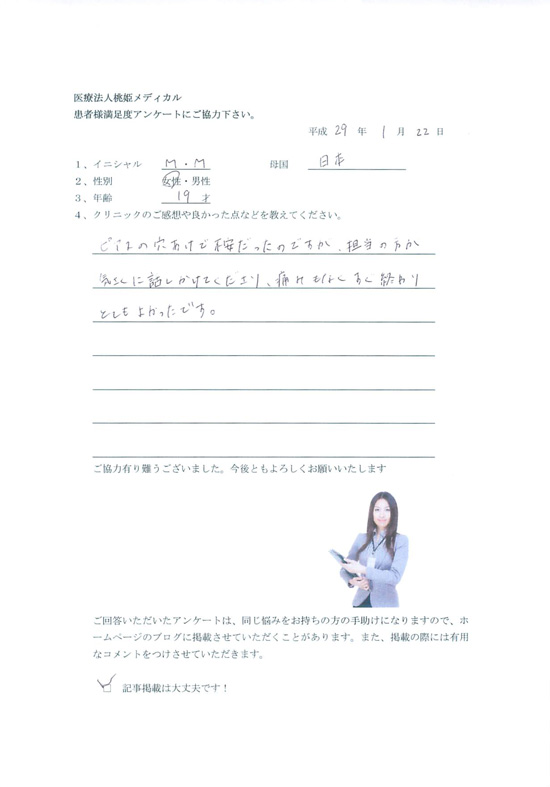 医療法人桃姫メディカル
患者様満足度アンケートにご協力下さい。
平成 29 年 1 月 22 日
1、イニシャル M・M 母国 日本
2、性別 女性・男性
3、年齢 19 才
4、クリニックのご感想や良かった点などを教えてください。
の穴あけで不安だったのですが、担当の方が
気さくに話しかけてくださり、痛みもなく 終わり
とてもよかったです。
ご協力有り難うございました。今後ともよろしくお願いいたします
ご回答いただいたアンケートは、同じ悩みをお持ちの方の手助けになりますので、ホ
ームページのブログに掲載させていただくことがあります。また、掲載の際には有用
なコメントをつけさせていただきます。
記事掲載は大丈夫です！